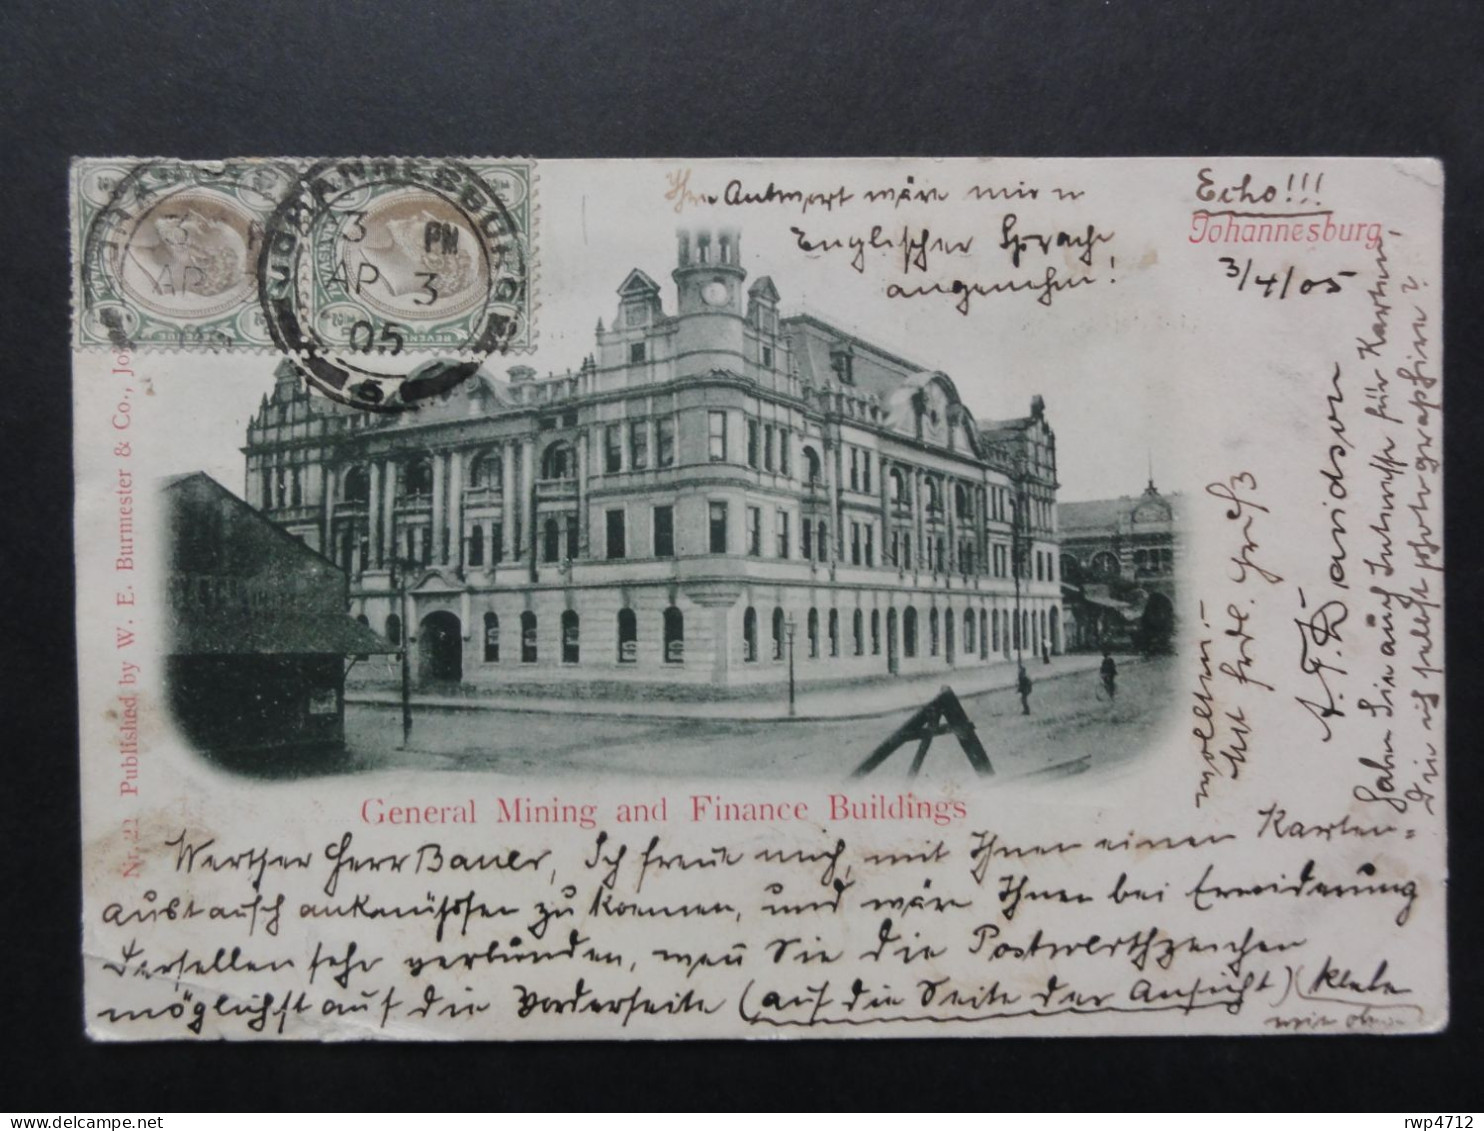 Echo!!!
Johannesburg,
3/4/05
Ihre Antwort wäre mir in
Englischer Sprache
angenehm!
JOHANNESBURG
3 PM
AP 3
05
6
JOHANNESBURG
3 P
AP 3
Nr. 21 Published by W. E. Burmester & Co., Jo
General Mining and Finance Buildings
Werther Herr Bauer, Ich freue mich, mit Ihnen einen Karten=
austausch anknüpfen zu koennen, und wäre Ihnen bei Erwiderung
derselben sehr verbunden, wenn Sie die Postwerthzeichen
möglichst auf die Vorderseite (auf die Seite der Ansicht) kleben
wie oben
wollten.-
Mit frdl. Gruß
Davidson
Haben Sie auch Interesse für Karten,
die ich selbst photographire?
rwp4712